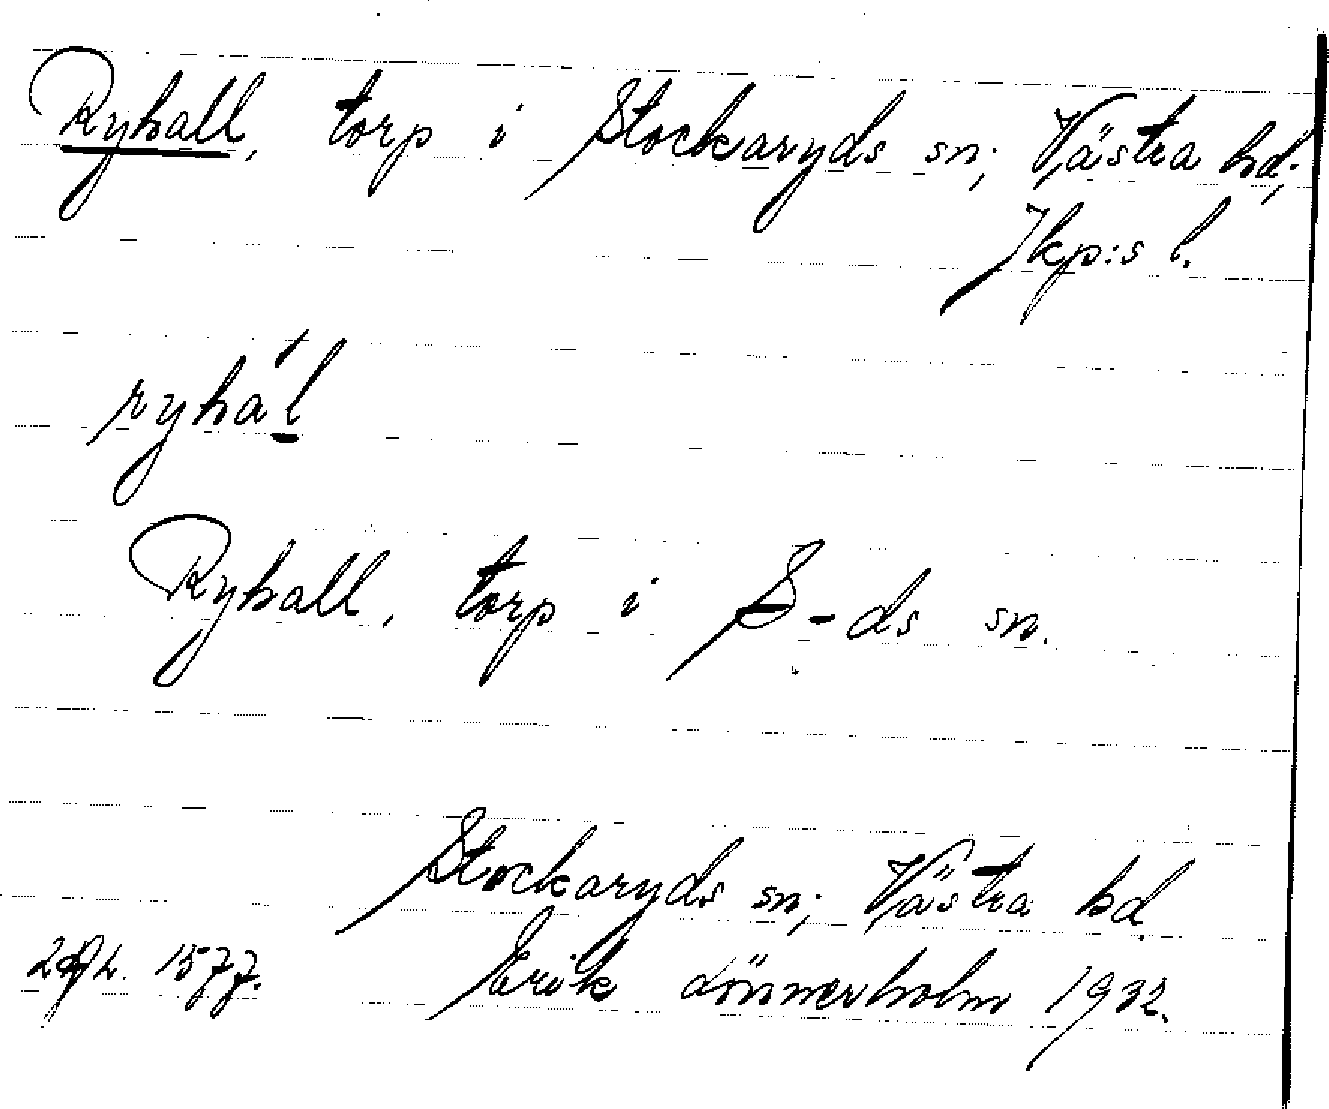 Ryhall, torp i Stockaryds sn; Västra hd;
Jkp:s l.
ryhá'l
Ryhall, torp i S-ds sn.
Stockaryds sn; Västra hd.
1577. Erik Lönnerholm 1932.